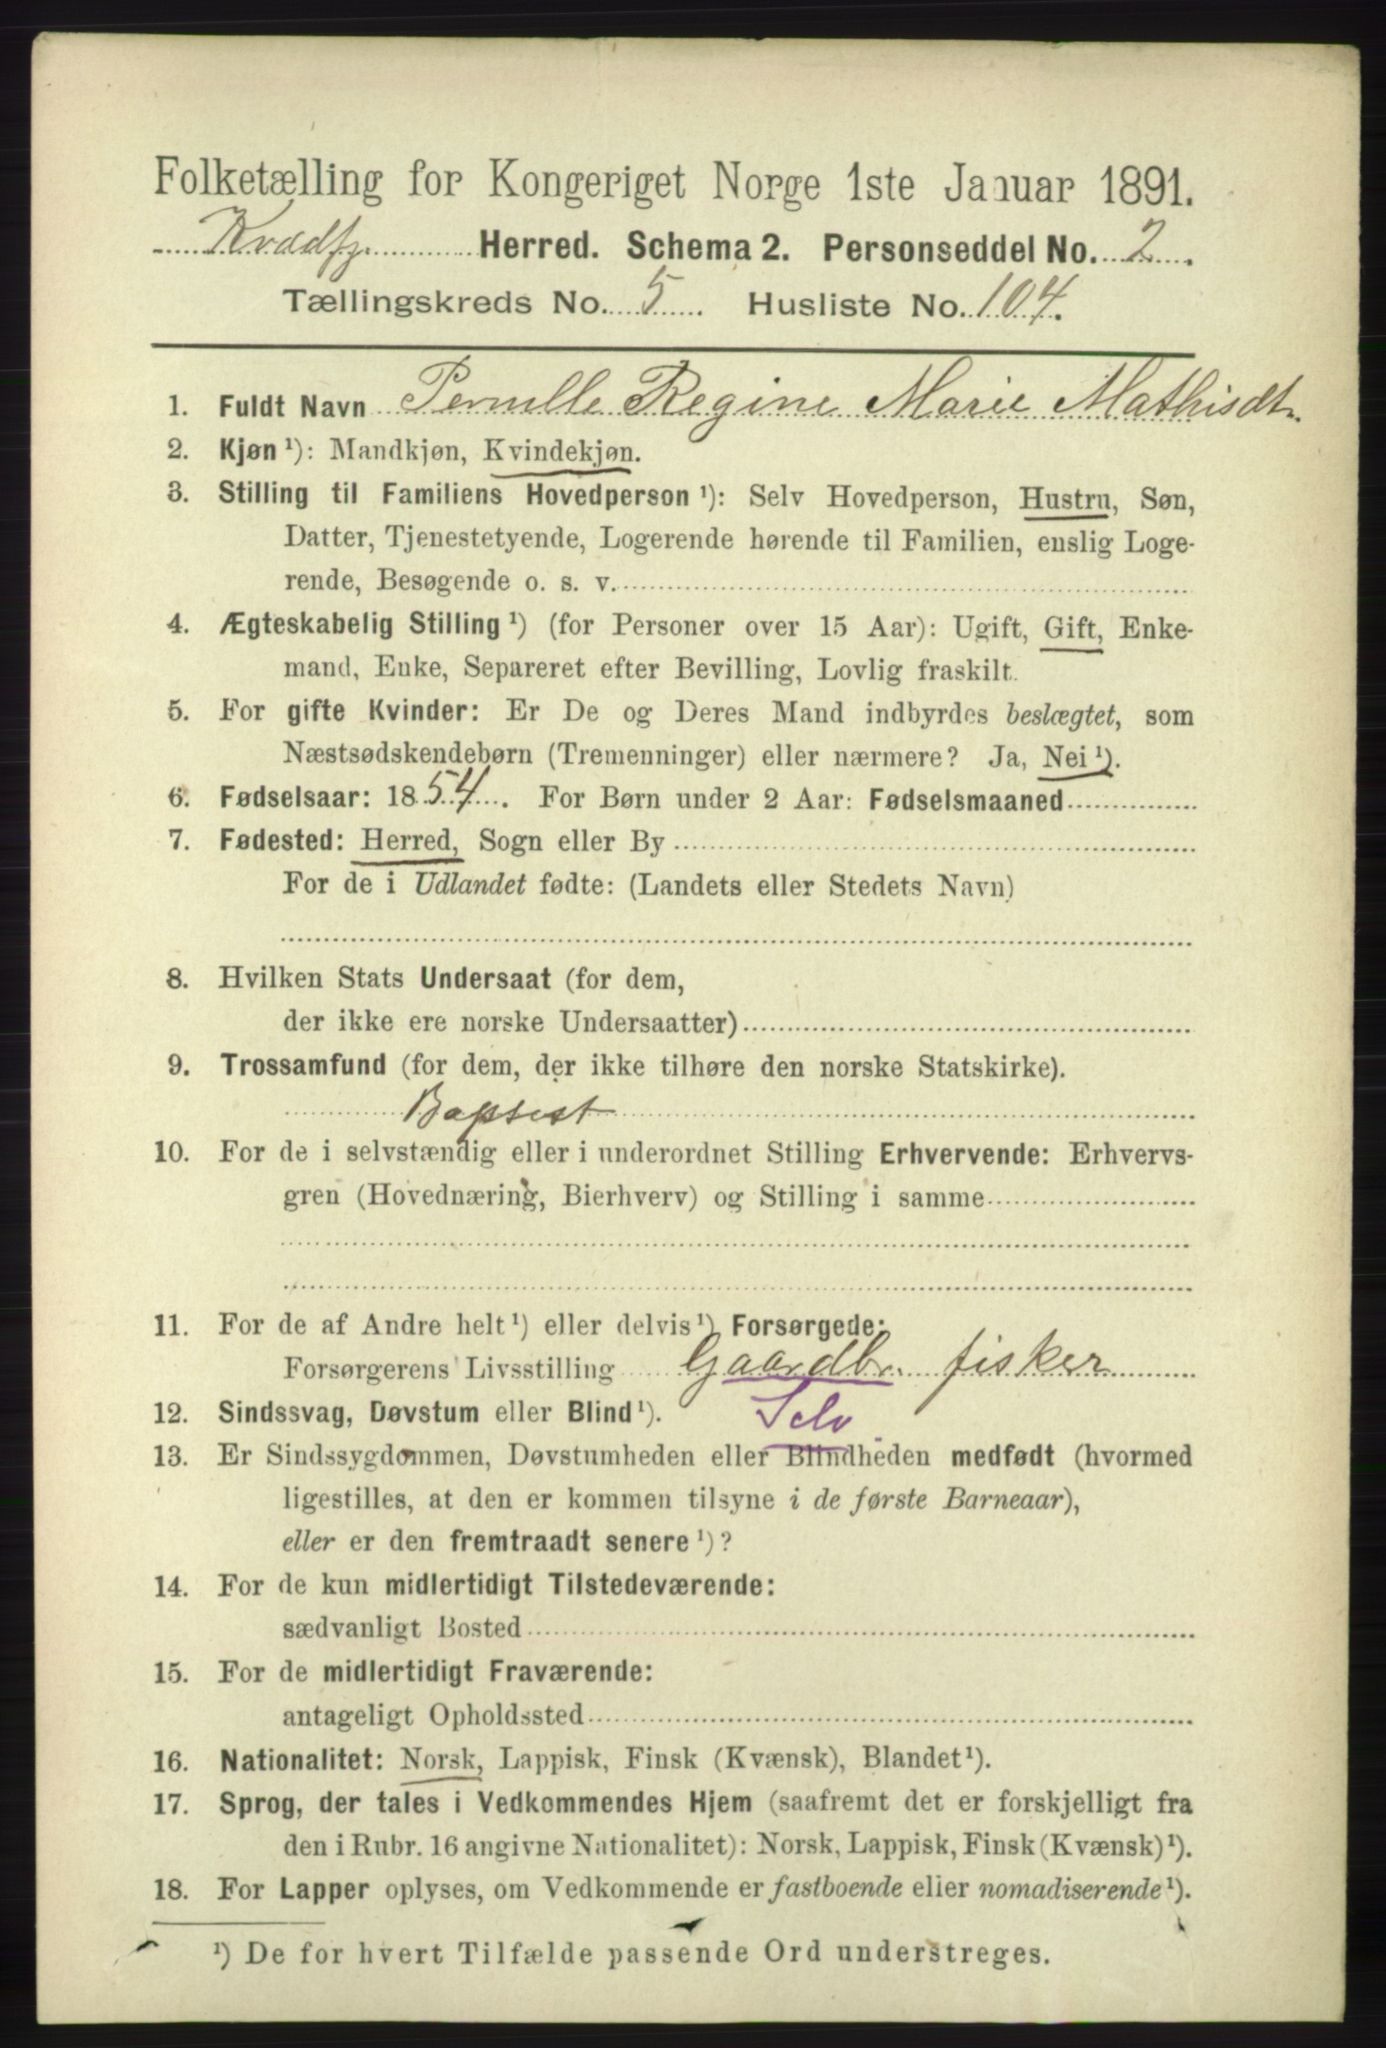 Folketælling for Kongeriget Norge 1ste Januar 1891.
Kvædfj. Herred. Schema 2. Personseddel No. 2.
Tællingskreds No. 5 Husliste No. 104.
1. Fuldt Navn Pernille Regine Marie Mathisdt.
2. Kjøn ¹): Mandkjøn, Kvindekjøn.
3. Stilling til Familiens Hovedperson ¹): Selv Hovedperson, Hustru, Søn,
Datter, Tjenestetyende, Logerende hørende til Familien, enslig Loge-
rende, Besøgende o. s. v.
4. Ægteskabelig Stilling ¹) (for Personer over 15 Aar): Ugift, Gift, Enke-
mand, Enke, Separeret efter Bevilling, Lovlig fraskilt.
5. For gifte Kvinder: Er De og Deres Mand indbyrdes beslægtet, som
Næstsødskendebørn (Tremenninger) eller nærmere? Ja, Nei ¹).
6. Fødselsaar: 1854. For Børn under 2 Aar: Fødselsmaaned
7. Fødested: Herred, Sogn eller By
For de i Udlandet fødte: (Landets eller Stedets Navn)
8. Hvilken Stats Undersaat (for dem,
der ikke ere norske Undersaatter)
9. Trossamfund (for dem, der ikke tilhøre den norske Statskirke).
Baptist
10. For de i selvstændig eller i underordnet Stilling Erhvervende: Erhvervs-
gren (Hovednæring, Bierhverv) og Stilling i samme
11. For de af Andre helt ¹) eller delvis ¹) Forsørgede:
Forsørgerens Livsstilling Gaardbr. fisker
12. Sindssvag, Døvstum eller Blind ¹). Selv
13. Er Sindssygdommen, Døvstumheden eller Blindheden medfødt (hvormed
ligestilles, at den er kommen tilsyne i de første Barneaar),
eller er den fremtraadt senere ¹)?
14. For de kun midlertidigt Tilstedeværende:
sædvanligt Bosted
15. For de midlertidigt Fraværende:
antageligt Opholdssted
16. Nationalitet: Norsk, Lappisk, Finsk (Kvænsk), Blandet ¹).
17. Sprog, der tales i Vedkommendes Hjem (saafremt det er forskjelligt fra
den i Rubr. 16 angivne Nationalitet): Norsk, Lappisk, Finsk (Kvænsk) ¹).
18. For Lapper oplyses, om Vedkommende er fastboende eller nomadiserende ¹).
¹) De for hvert Tilfælde passende Ord understreges.